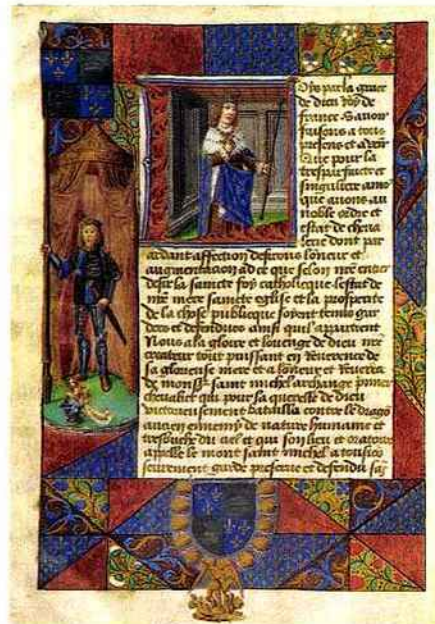 Oys par la grace
de dieu Roy de
france Savoir
faisons a tous
presens et advenir
Que pour la
tresparfaicte et
singuliere amo
que avons au
noble ordre et
estat de cheva
lerie dont par
ardant affection desirons lonneur et
augmentacion ad ce que selon nre entier
desir la saincte foy catholicque lestat de
nre mere saincte eglise et la prosperite
de la chose publicque soyent tenus gar
dees et defendues ainsi quil appartient
Nous a la gloire et louenge de dieu nre
createur tout puissant en Reverence de
sa glorieuse mere et a lonneur et Reveren
de monss saint michel archange premier
chevalier qui pour la querelle de dieu
victorieusement batailla contre le drago
ancien ennemy de nature humaine et
tresbucha du ciel et qui son lieu et oratoire
appelle le mont saint michel a tousiors
seurement garde preserve et defendu sas